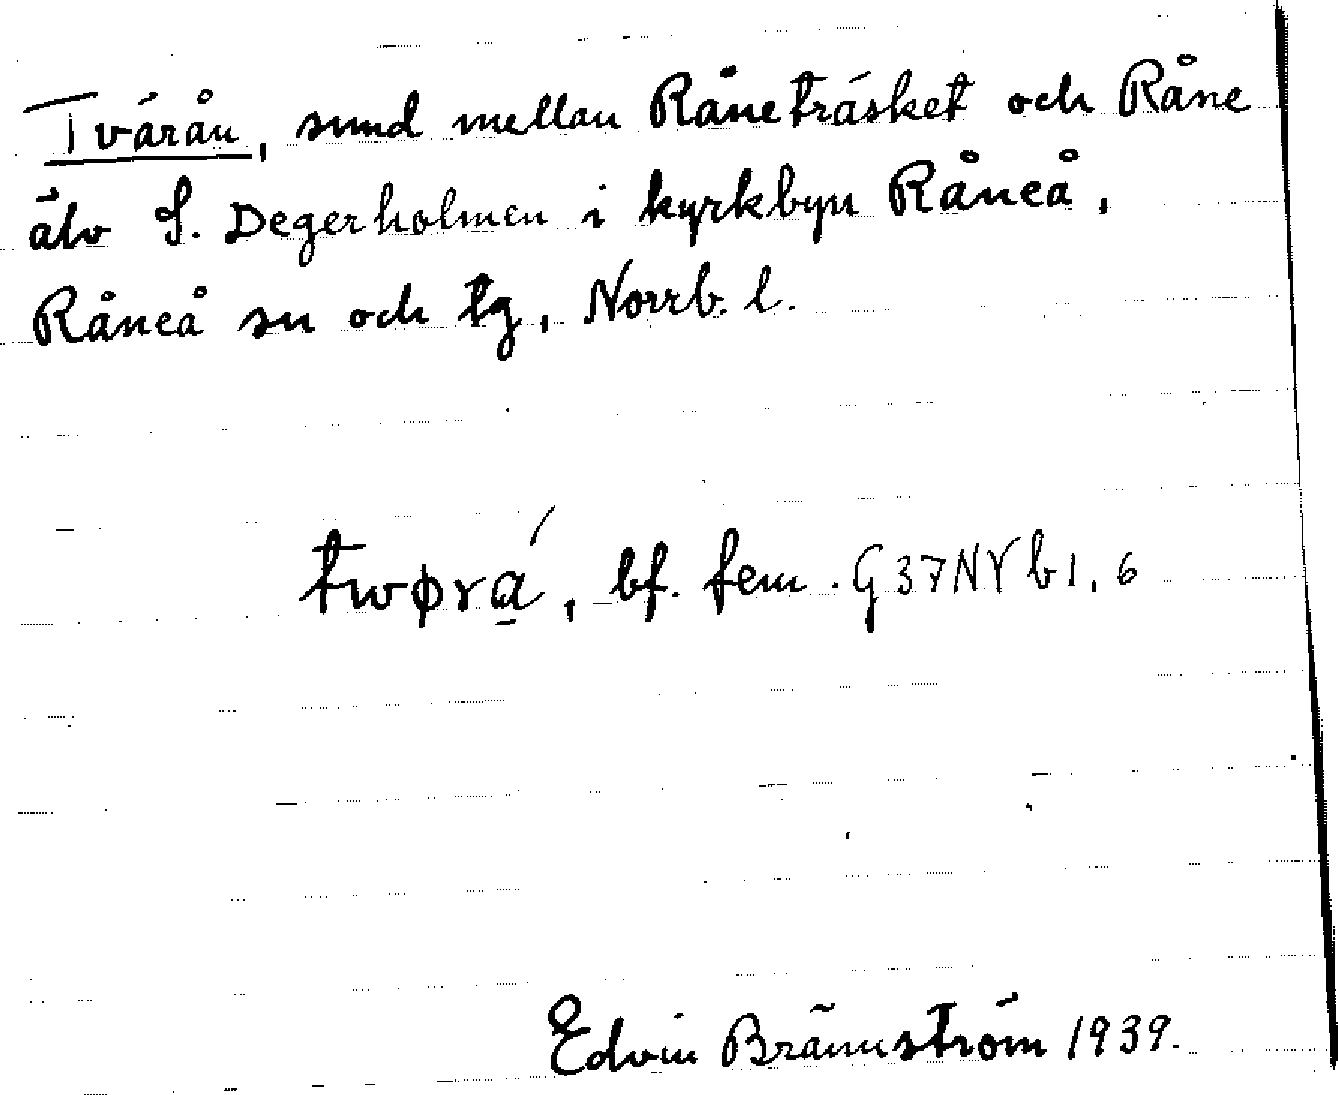 Tvärån, sund mellan Råneträsket och Råne
älv S. Degerholmen i kyrkbyn Råneå,
Råneå sn och tg, Norrb. l.
twørά, bf. fem. G37NVb1, 6
Edvin Brännström 1939.